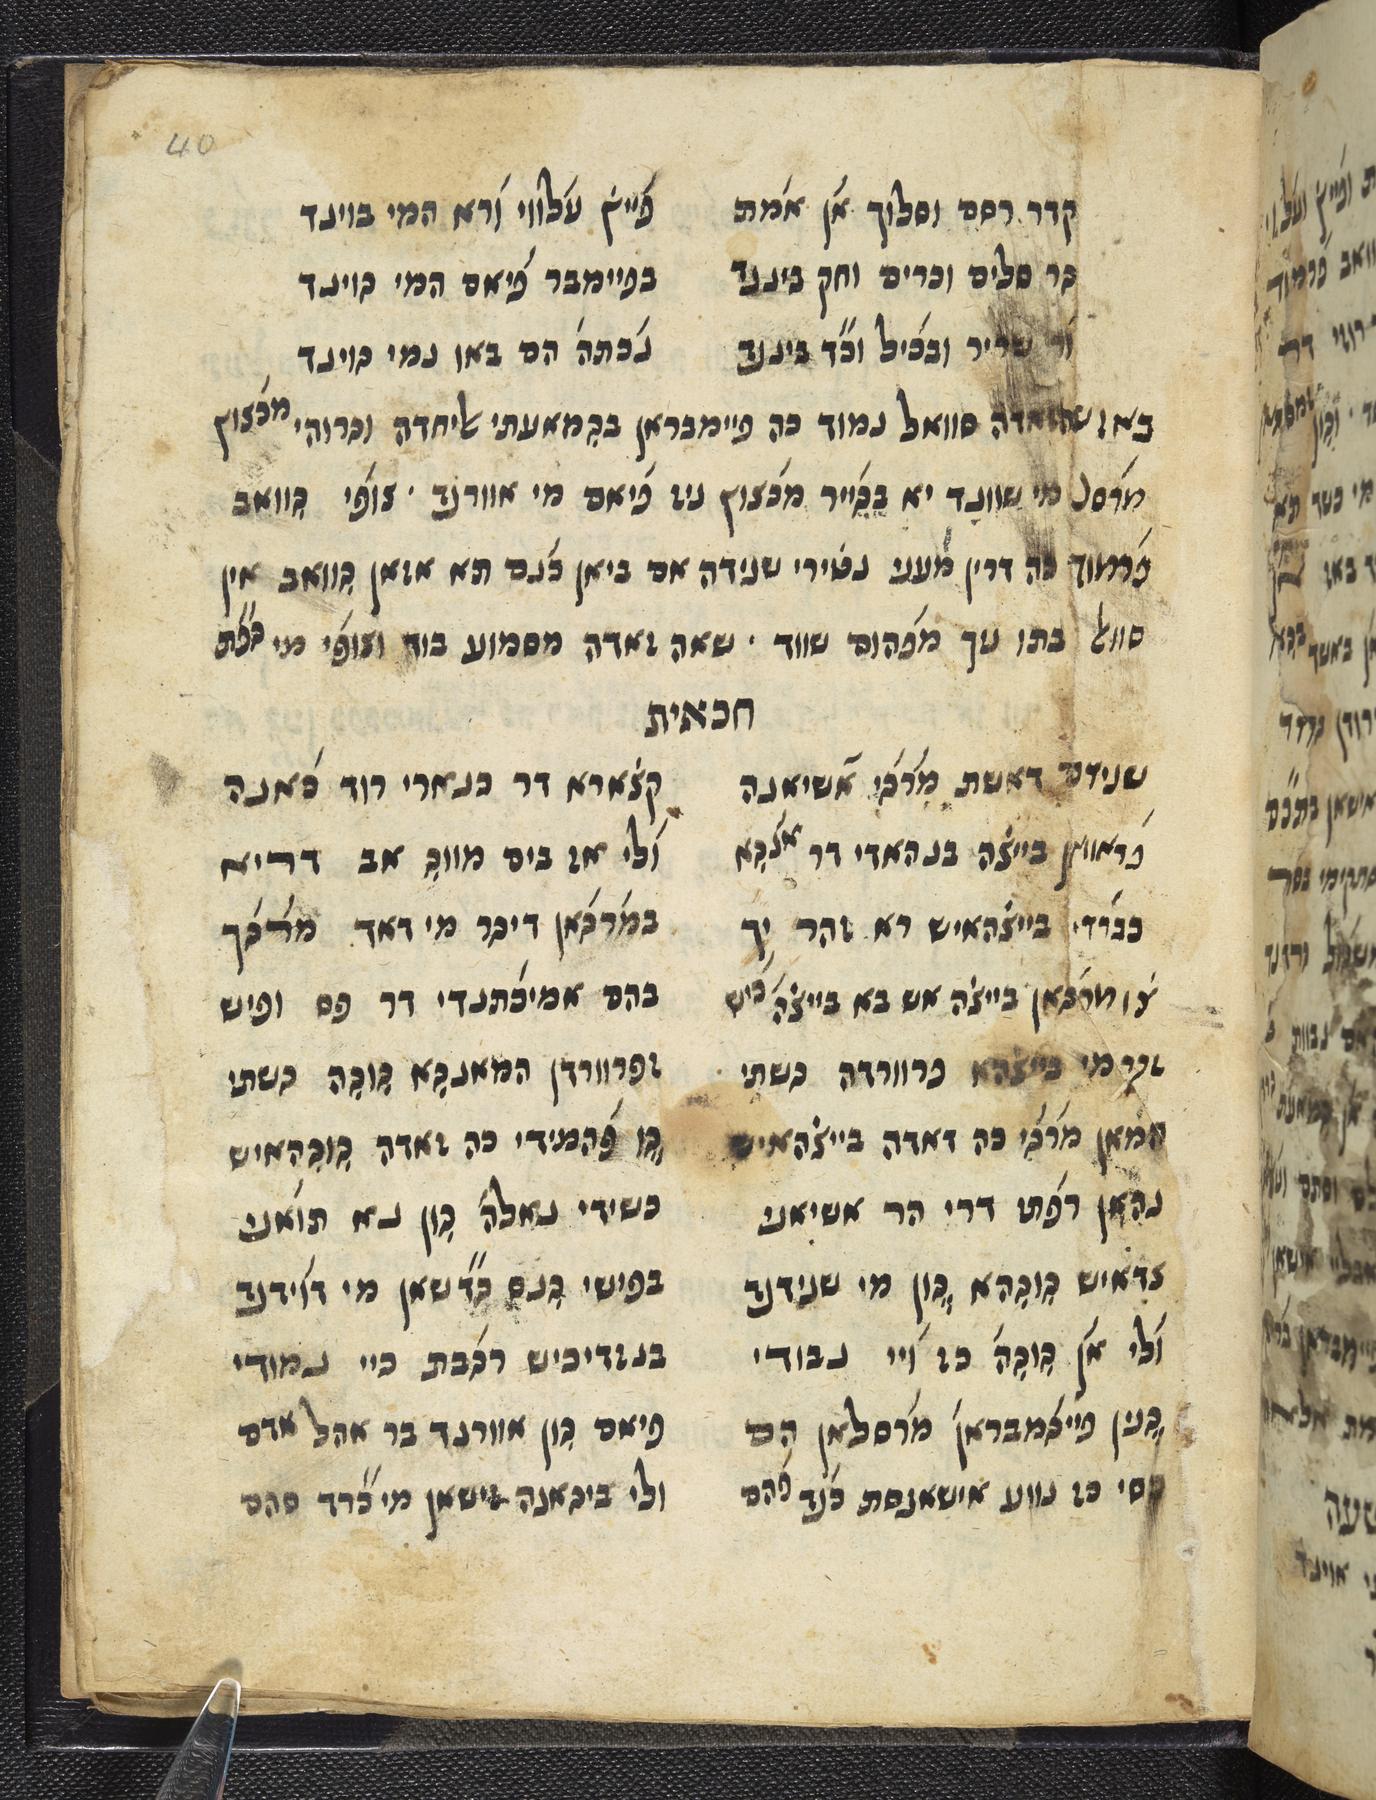 40
קדר רסם וסלוך אן אמת פייץ עלווי ורא המי בוינד
בר סלים וכרים וחק בינند בפיימבר פיאם המי גוינד
ור שריר ובכיל וכד בינند נכתה הם באו נמי גוינד
באז שהזאדה סוואל נמוד כה פיימבראן בגמאעתי עליחדה וגרוהי מכצוץ
מרסל מי שוונד יא בגייר מכצוץ ניז פיאם מי אוורנד · צופי גוואב
פרמוד כה דרין מעני נטירי שנידה אם ביאן כנם תא אזאן גוואב אין
סוואל בתו נیך מפהום שווד · שאה זאדה מסמוע בוד וצופי מי גפת
חכאית
שנידם דאשת מרגי אשיאנה קצארא דר כנארי רוד כאנה
פראוואן בייצה בנהאדי דר אנגא ולי אז בים מווג אב דריא
בבrדי בייצהאיש רא זהר יך במרגאן דיגר מי דאד מרגך
צו מרגאן בייצה אש בא בייצה כיש בהם אמיכתנדי דר פס ופיש
זגר מי בייצהא פרוורדה גשתי זפרוורדן המאנגא גוגה גשתי
המאן מרגי כה דאדה בייצהאיש גו פהמידי כה זאדה גוגהאיש
נהאן רפתי דרי הר אשיאני כשידי נאלה גון נא תואני
צדאיש גוגהא גון מי שנידנד בפישי גנס כד שאן מי דוידנד
ולי אן גוגה כז ויי נבודי בנזדיכיש רגבת כיי נמודי
גנין פייגמבראן מרסלאן הם פיאם גון אוורנד בר אהל אדם
כסי כז נוע אישאנסת כנד פהם ולי ביגאנה זישאן מי כרד סהם